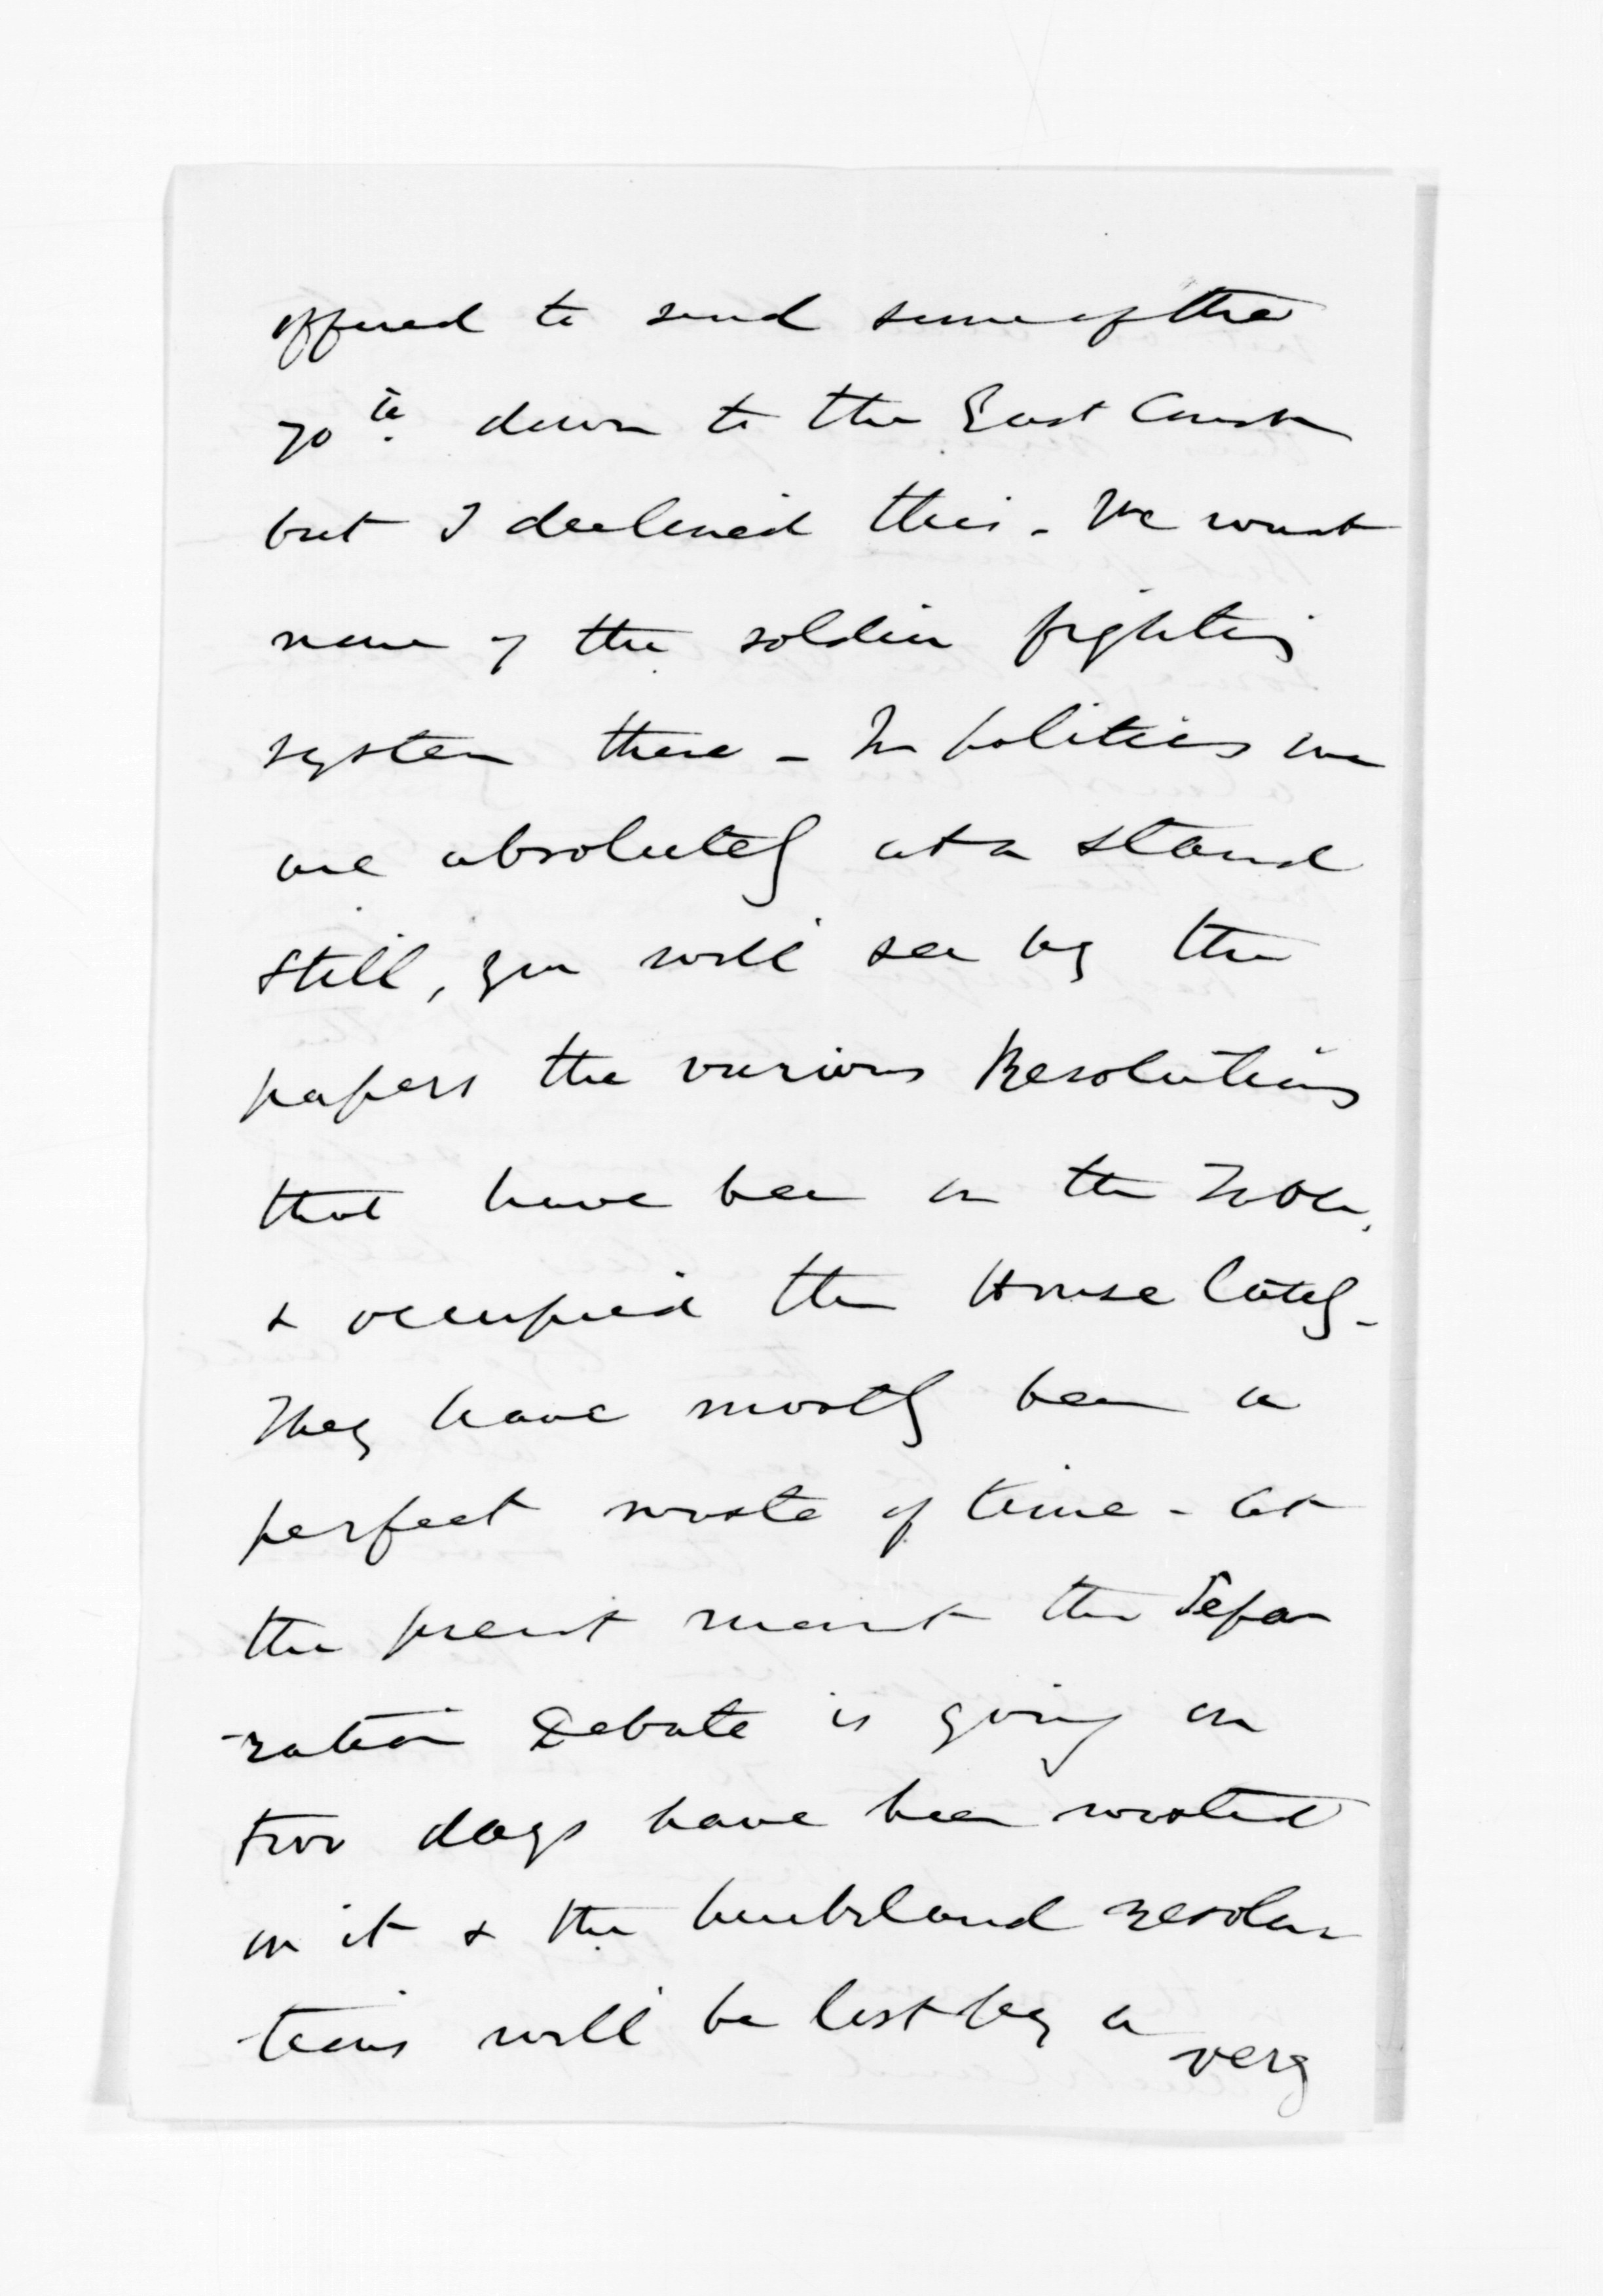 offered to send some of the
70th. down to the East Coast
but I declined this - We want
none of the soldier fighting
system there - In politics we
are absolutely at a stand
still, you will see by the
papers the various Resolutions
that have been on the Table,
& occupied the House lately -
They have mostly been a
perfect waste of time - At
the present moment the Sepa
-ration Debate is going on
two days have been wasted
on it & the resolu
-tions will be lost by a
very